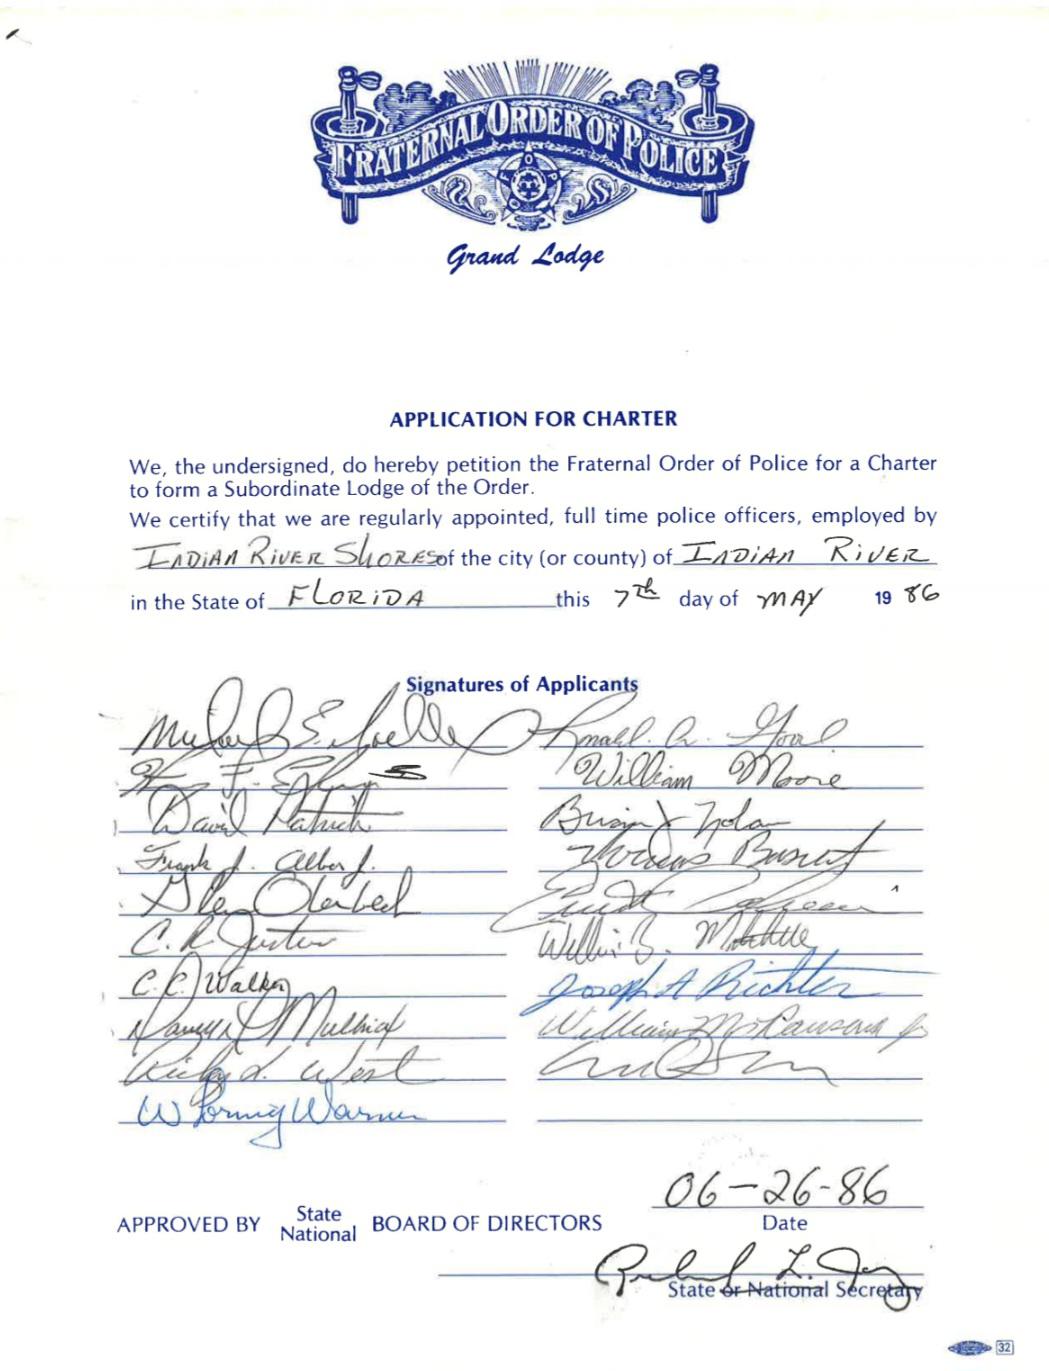 FRATERNAL ORDER OF POLICE
F O P
Grand Lodge
APPLICATION FOR CHARTER
We, the undersigned, do hereby petition the Fraternal Order of Police for a Charter
to form a Subordinate Lodge of the Order.
We certify that we are regularly appointed, full time police officers, employed by
INDIAN RIVER SHORES of the city (or county) of INDIAN RIVER
in the State of FLORIDA this 7th day of MAY 1986
Signatures of Applicants
Michael E.
Ronald
William Moore
David
Brian J Nolan
Frank J.
Thomas
Glen
C. R. Justice
C. C. Walker
Joseph A Richter
Nancy
William
Ricky L. West
W Warner
06-26-86
APPROVED BY State National BOARD OF DIRECTORS
Date
L.
State or National Secretary
32